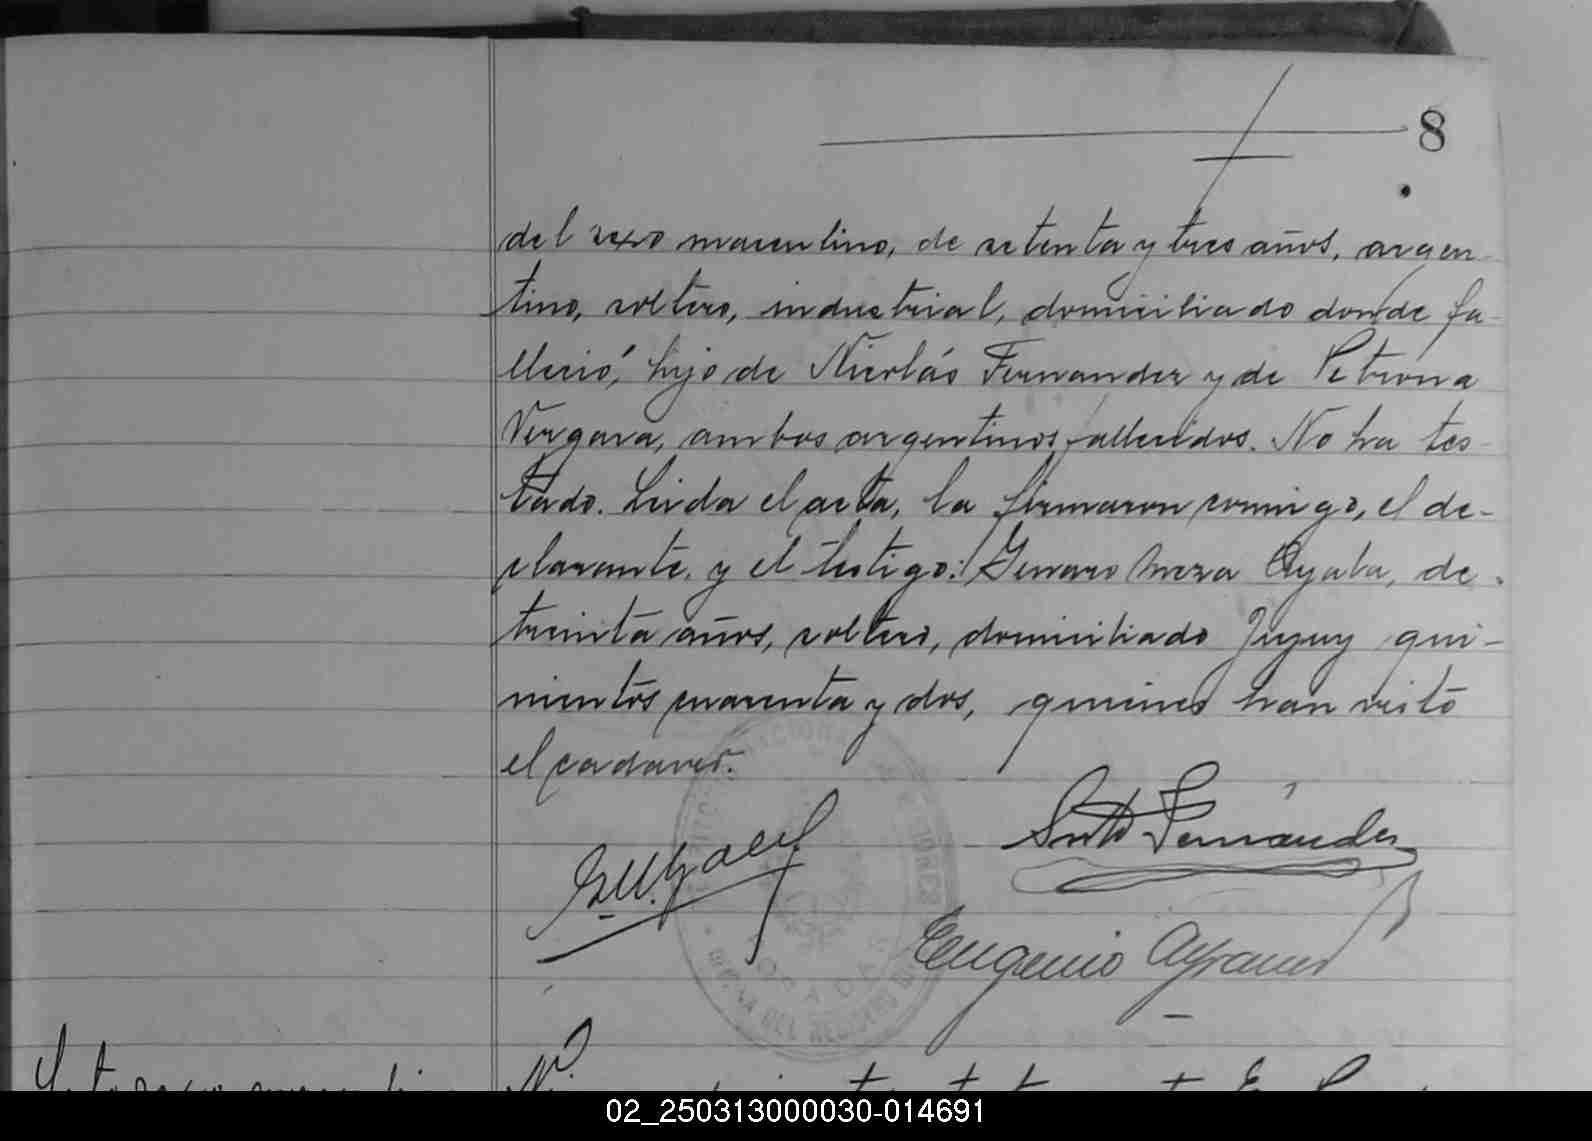 8
del sexo masculino, de setenta y tres años, argen-
tino, soltero, industrial, domiciliado donde fa-
lleció, hijo de Nicolás Fernandez y de Petrona
Vergara, ambos argentinos fallecidos. No ha tes-
tado. Leida el acta, la firmaron conmigo, el de-
clarante, y el testigo: Genaro Meza Ayala, de
treinta años, soltero, domiciliado Jujuy qui-
nientos cuarenta y dos, quienes han visto
el cadaver.
Fernández
Eugenio
POSADAS
OFICINA DEL REGISTRO
02_250313000030-014691